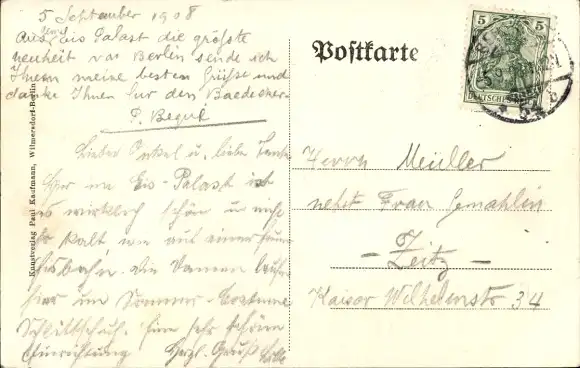 5 September 1908
Aus dem Eis Palast die größte
neuheit von Berlin sende ich
Ihnen meine besten Grüße und
danke Ihnen für den Baedecker
P. Begué
Lieber Onkel u. liebe Tante
Hier im Eis-Palast ist
es wirklich schön u. nicht
so kalt wie auf einer
Eisbahn. Die Damen laufen
hier im Sommer-Costume
Schlittschuh. Eine sehr schöne
Einrichtung Herzl. Gruß
Kunstverlag Paul Kaufmann, Wilmersdorf-Berlin
Postkarte
5 5
DEUTSCHES
Herrn Müller
nebst Frau Gemahlin
- Zeitz -
Kaiser Wilhelmstr 34